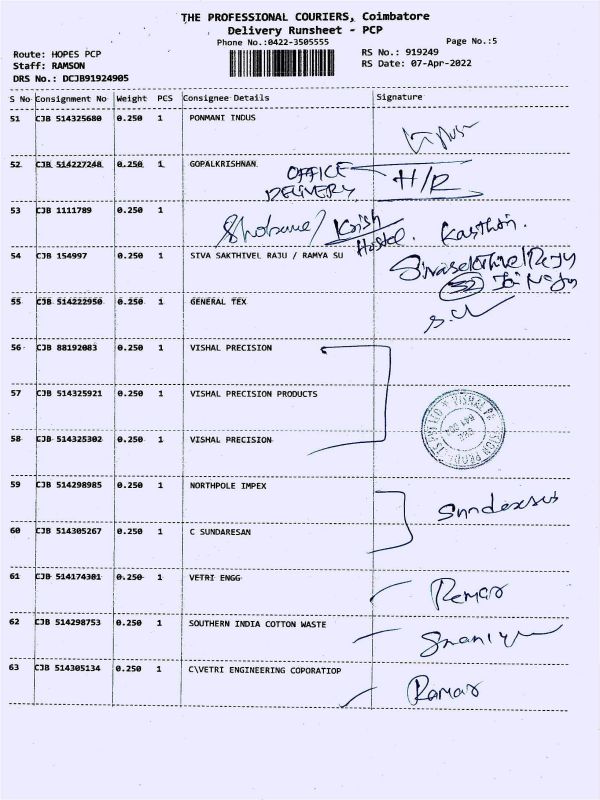 THE PROFESSIONAL COURIERS, Coimbatore
Delivery Runsheet - PCP
Phone No.:0422-3505555
Page No.:5
Route: HOPES PCP
RS No.: 919249
Staff: RAMSON
RS Date: 07-Apr-2022
DRS No.: DCJB91924905
S No Consignment No Weight PCS Consignee Details Signature
51 CJB 514325680 0.250 1 PONMANI INDUS
52 CJB 514227248 0.250 1 GOPALKRISHNAN OFFICE H/R
DELIVERY
53 CJB 1111789 0.250 1
Krish
Hostel.
54 CJB 154997 0.250 1 SIVA SAKTHIVEL RAJU / RAMYA SU
55 CJB 514222950 0.250 1 GENERAL TEX
56 CJB 88192083 0.250 1 VISHAL PRECISION
57 CJB 514325921 0.250 1 VISHAL PRECISION PRODUCTS
58 CJB 514325302 0.250 1 VISHAL PRECISION
59 CJB 514298985 0.250 1 NORTHPOLE IMPEX
60 CJB 514305267 0.250 1 C SUNDARESAN
61 CJB 514174301 0.250 1 VETRI ENGG
62 CJB 514298753 0.250 1 SOUTHERN INDIA COTTON WASTE
63 CJB 514305134 0.250 1 C\VETRI ENGINEERING COPORATIOP Ramar